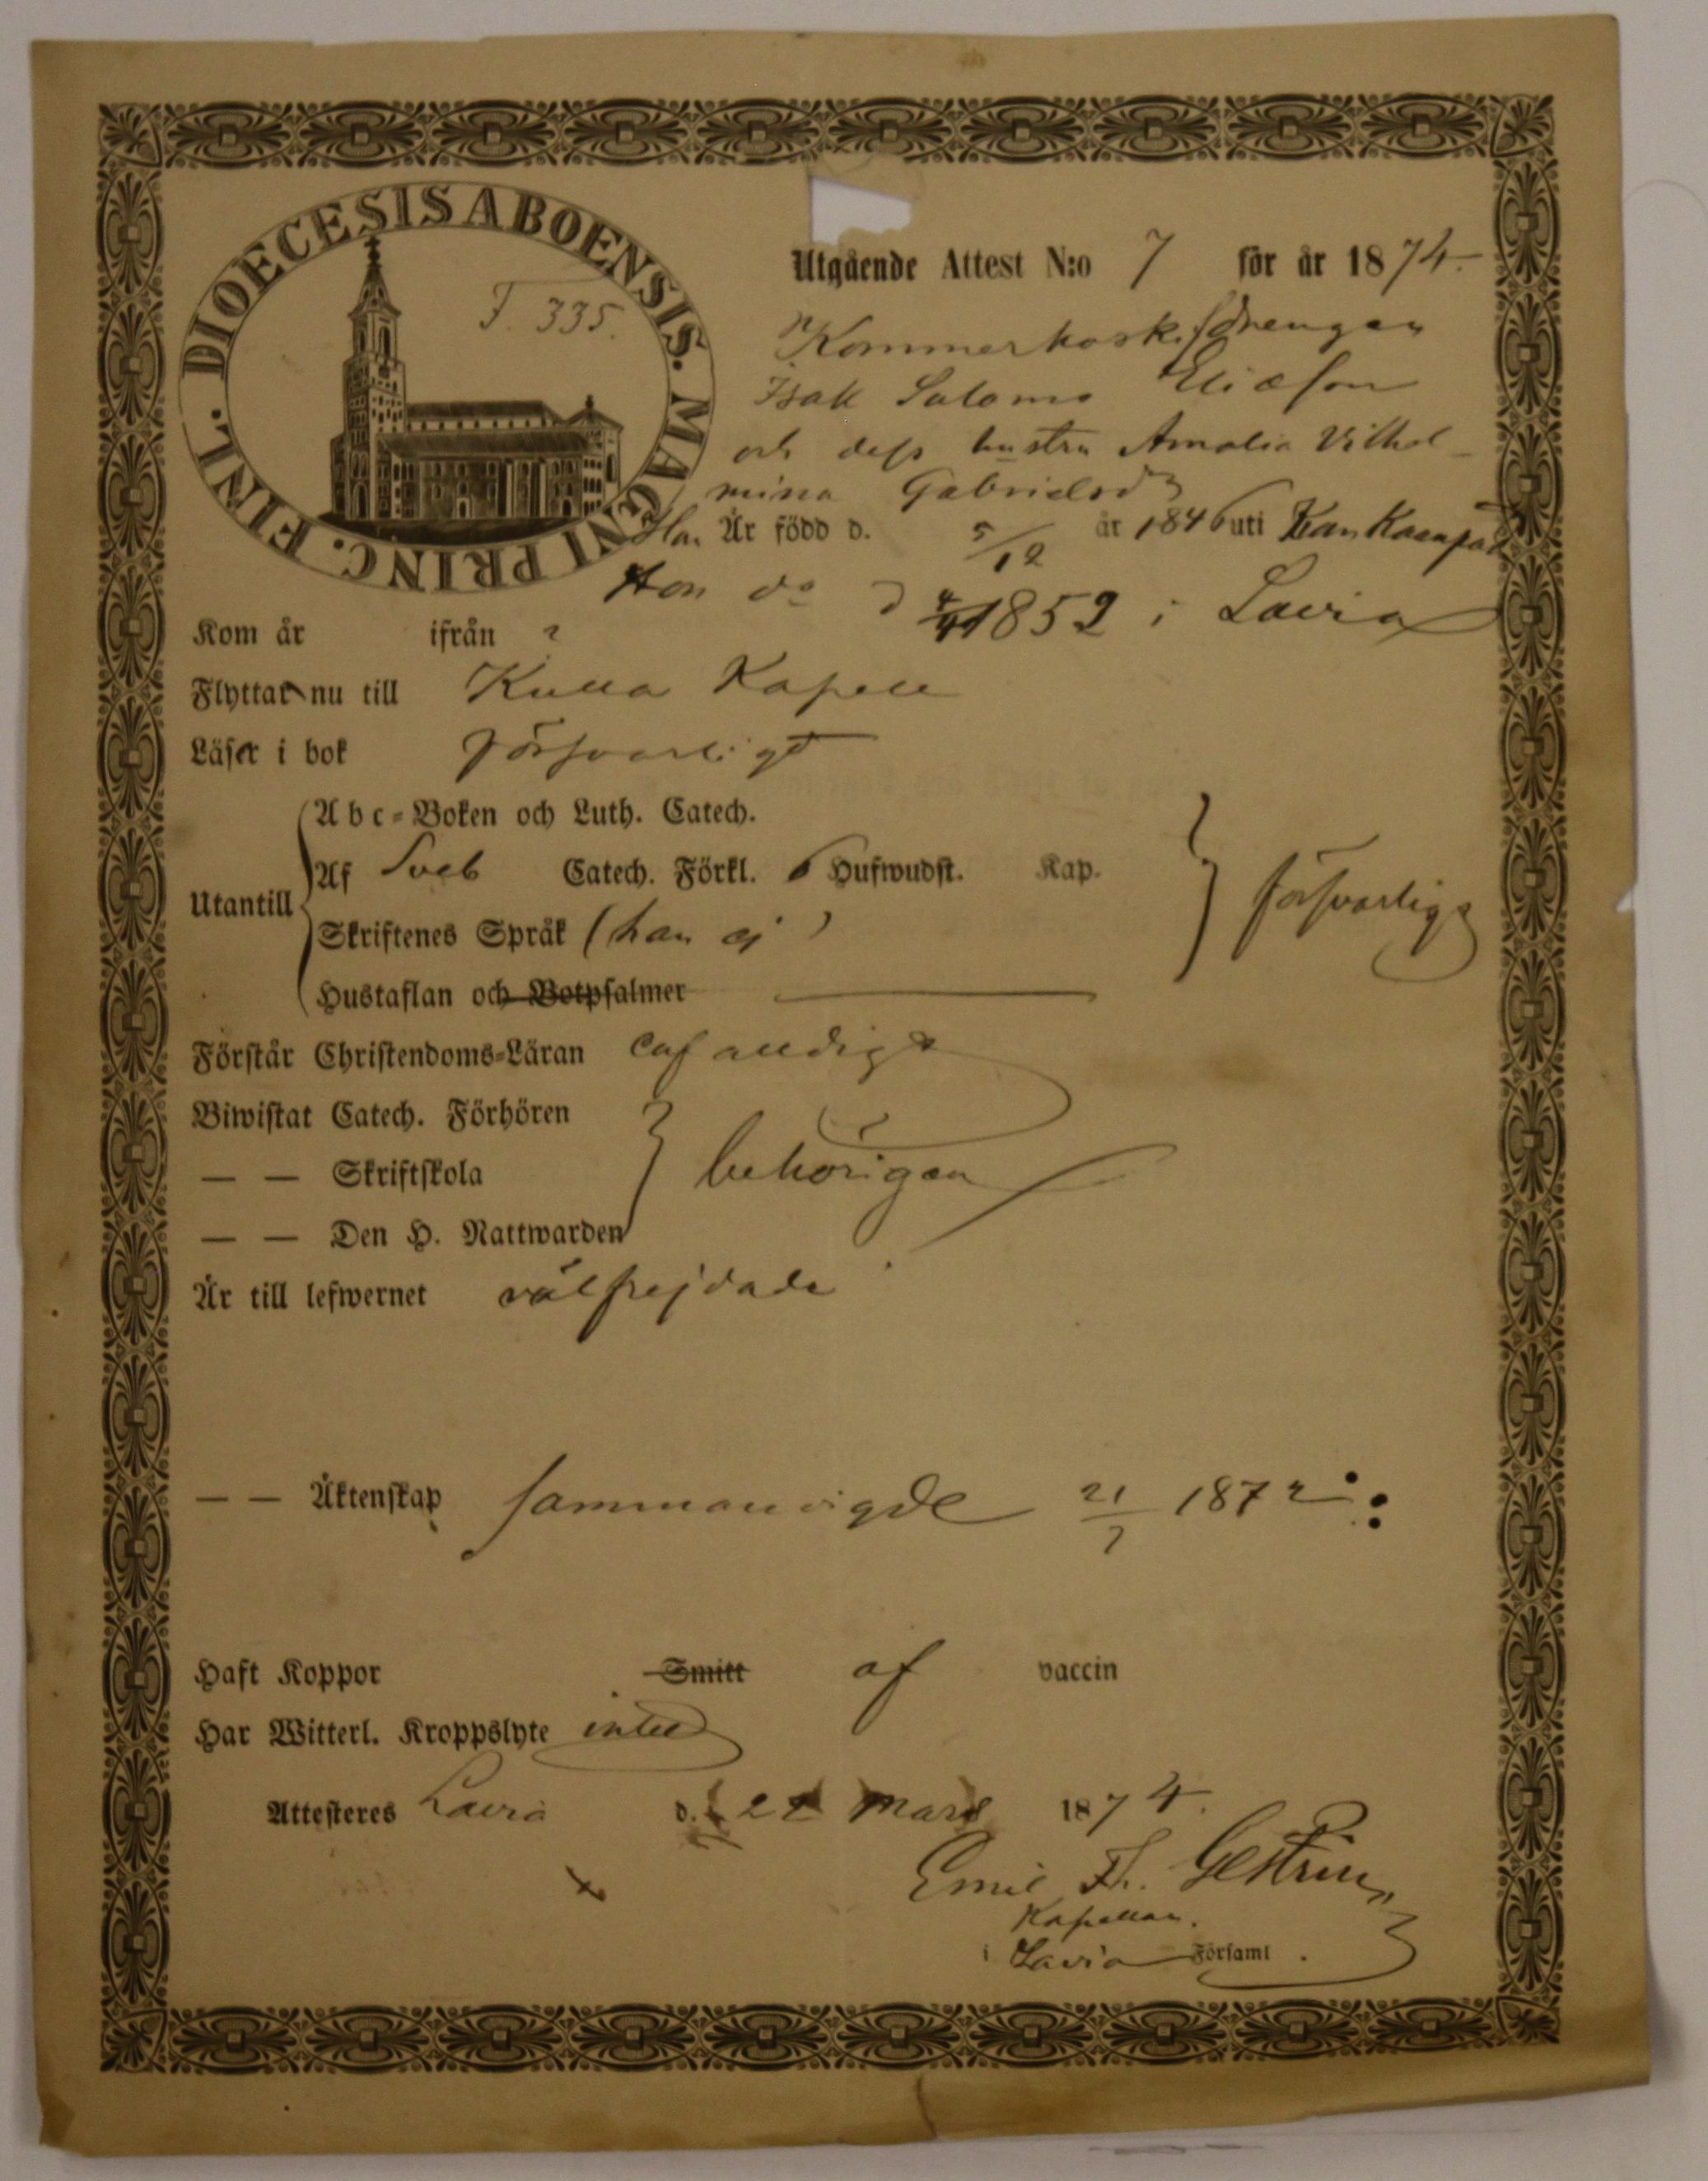 DIOECESIS ABOENSIS. MAGNI PRINC. FINL.
F. 335.
Utgående Attest N:o 7 för år 1874.
Isak Salomo Eliæson
och dess hustru Amalia Vilhel-
mina Gabrielsdr
Han Är född d. 5/12 år 1846 uti Kankaanpää
Hon do d 1852 i Lavia
Kom år ifrån ?
Flyttar nu till Kulla Kapell
Läser i bok försvarligt
Utantill
Abc-Boken och Luth. Catech.
Af Sveb Catech. Förkl. 6 Hufwudst. Kap.
Skriftenes Språk (han ej)
Hustaflan och Botpsalmer
försvarligt
Förstår Christendoms-Läran enfaldigt
Biwistat Catech. Förhören
— — Skriftskola behörigen
— — Den H. Nattwarden
Är till lefwernet välfrejdade
— — Äktenskap sammanvigde 21/7 1872
Haft Koppor Smitt af vaccin
Har Witterl. Kroppslyte intet
Attesteres Lavia d. 22 Mars 1874.
Emil Th. Gestrin
Kapellan.
i Lavia Församl.